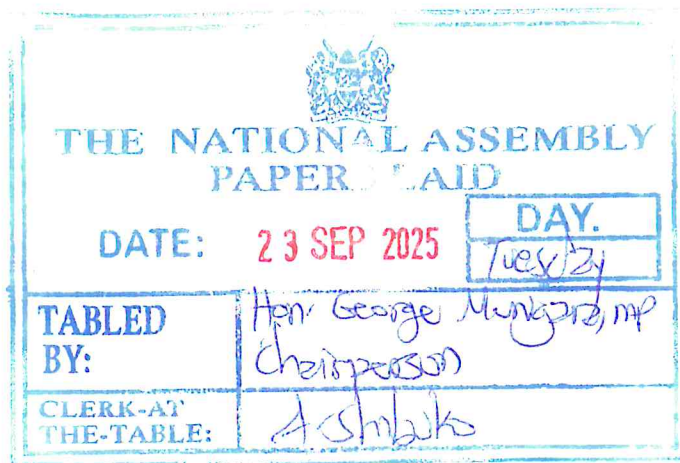 THE NATIONAL ASSEMBLY
PAPERS LAID
DATE: 23 SEP 2025
DAY.
Tuesday
TABLED BY:
Hon. George, MP
Chairperson
CLERK-AT
THE-TABLE: